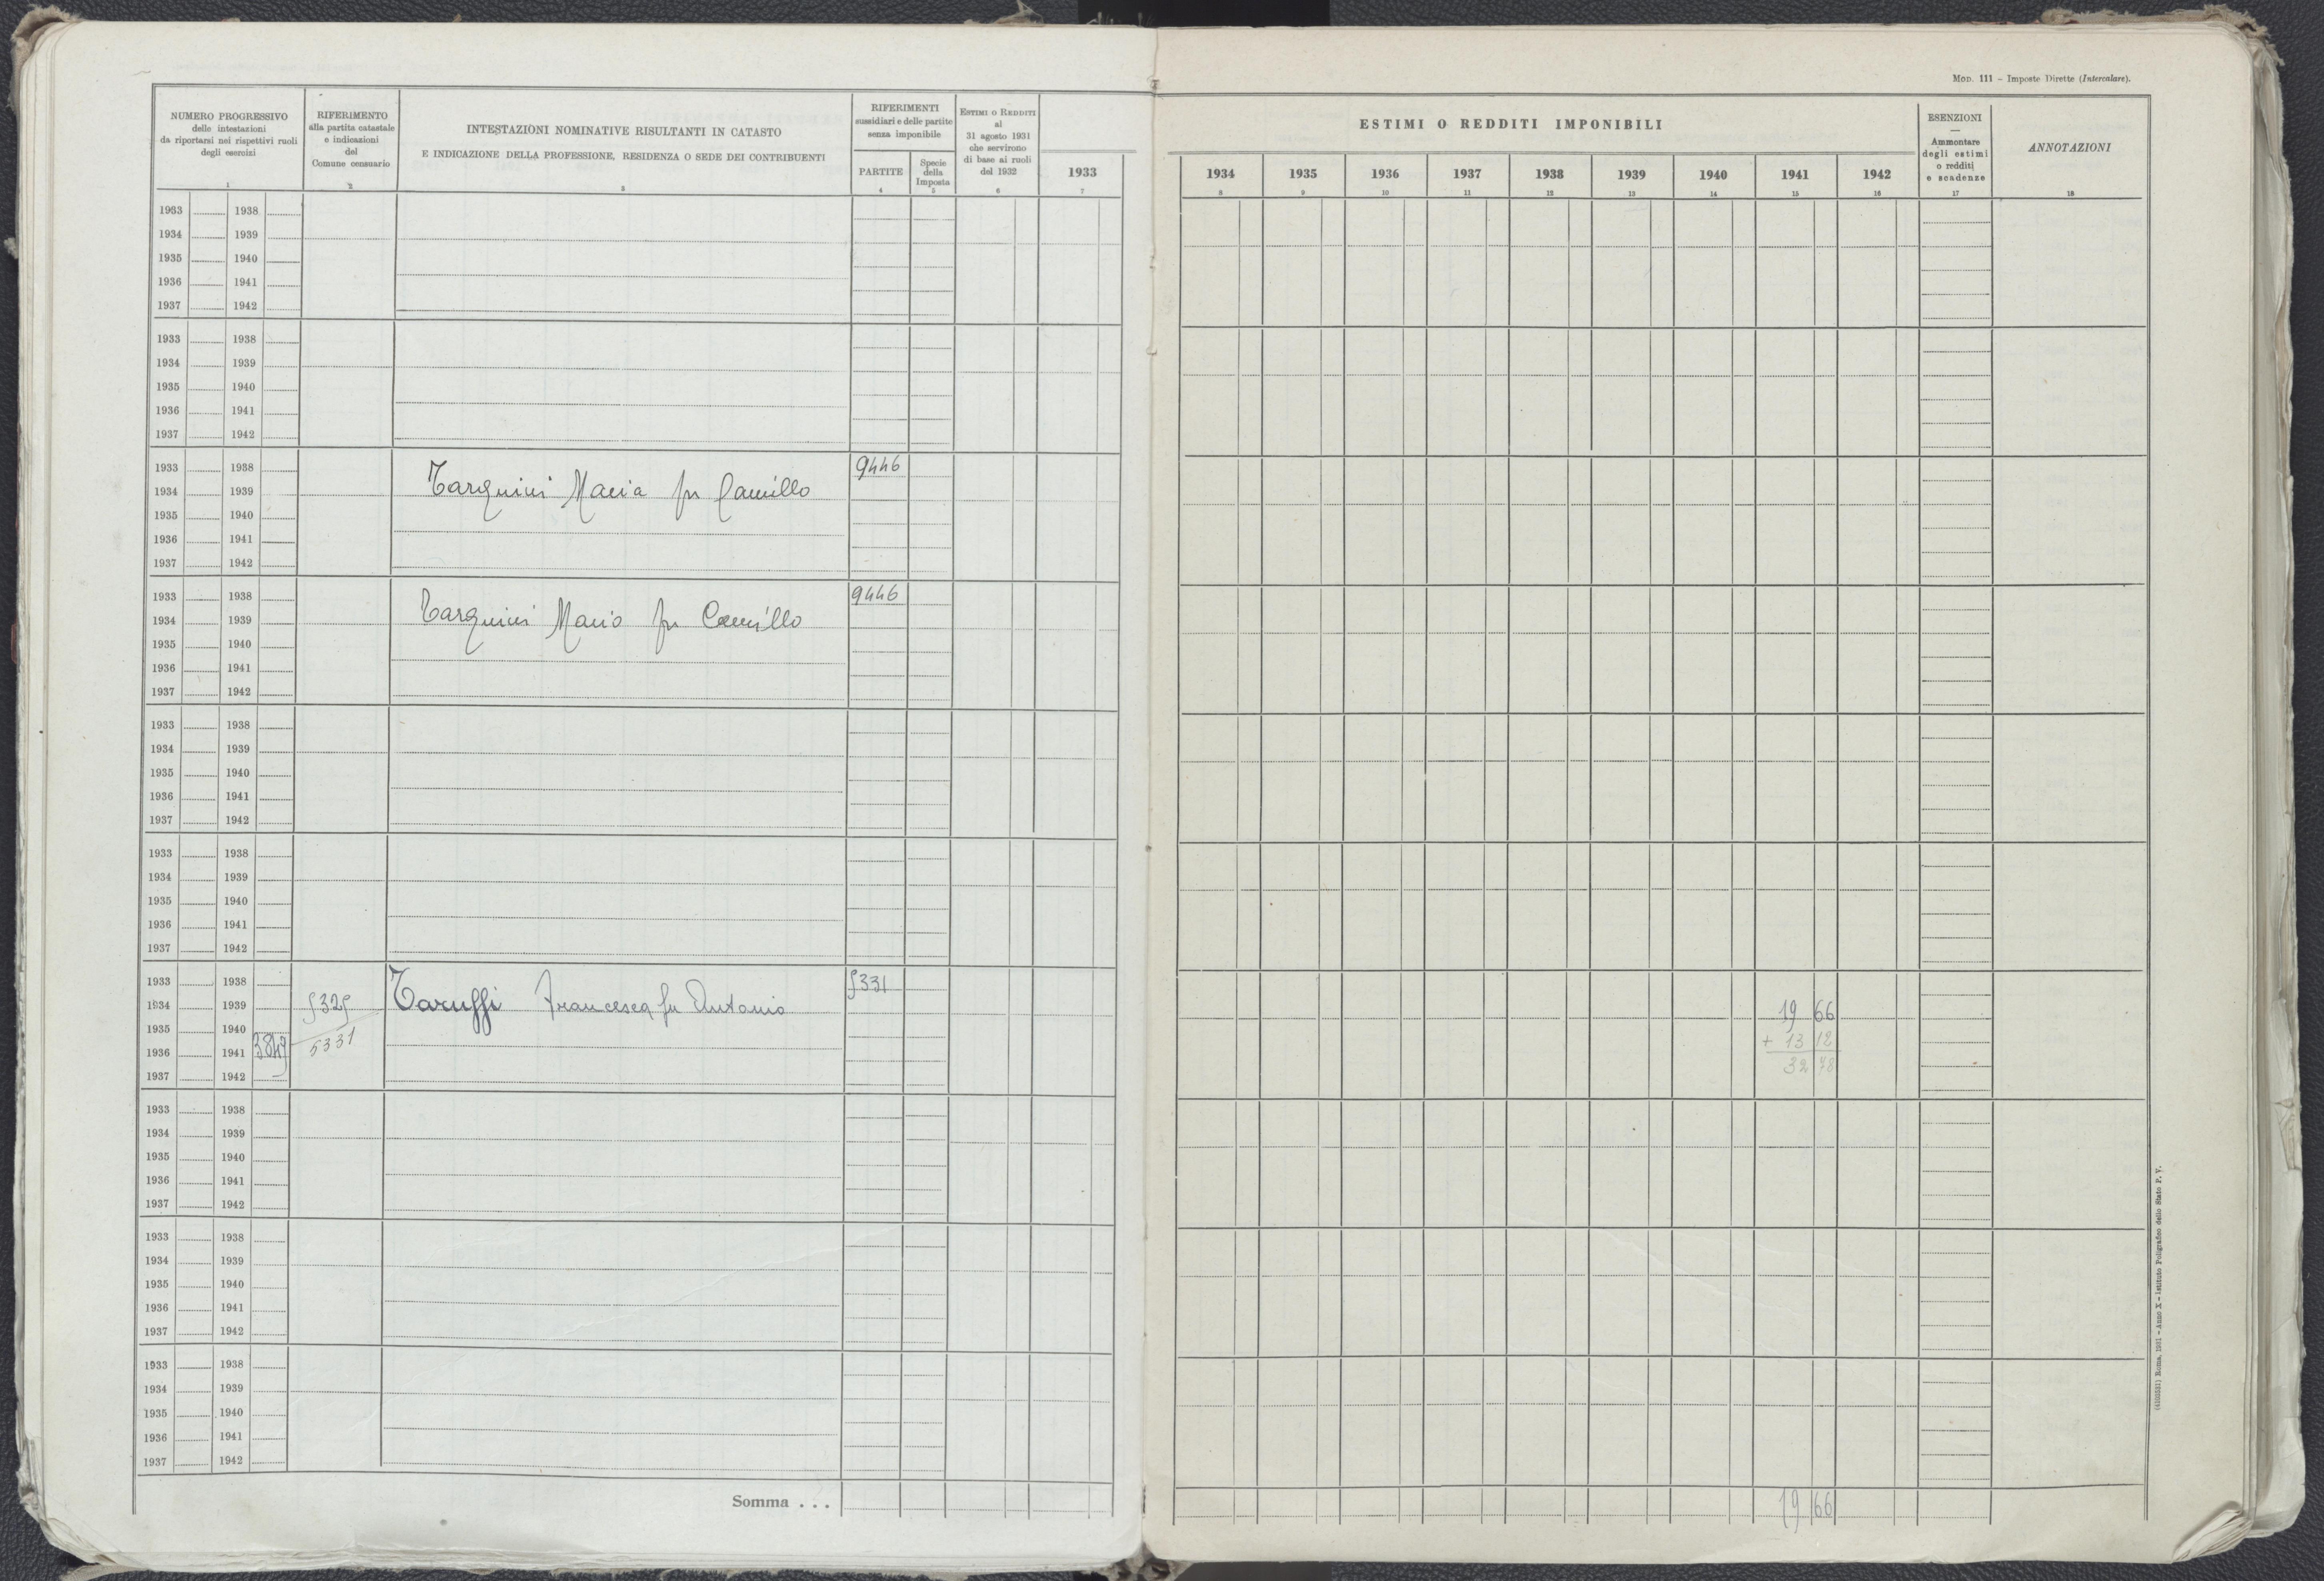 MOD. 111 – Imposte Dirette (Intercalare).
NUMERO PROGRESSIVO
delle intestazioni
da riportarsi nei rispettivi ruoli
degli esercizi
1
RIFERIMENTO
alla partita catastale
e indicazioni
del
Comune censuario
2
INTESTAZIONI NOMINATIVE RISULTANTI IN CATASTO
E INDICAZIONE DELLA PROFESSIONE, RESIDENZA O SEDE DEI CONTRIBUENTI
3
RIFERIMENTI
sussidiari e delle partite
senza imponibile
PARTITE
4
Specie
della
Imposta
5
ESTIMI O REDDITI
al
31 agosto 1931
che servirono
di base ai ruoli
del 1932
6
1933
7
ESTIMI O REDDITI IMPONIBILI
1934 1935 1936 1937 1938 1939 1940 1941 1942
8 9 10 11 12 13 14 15 16
ESENZIONI
—
Ammontare
degli estimi
o redditi
e scadenze
17
ANNOTAZIONI
18
1933 1938
1934 1939
1935 1940
1936 1941
1937 1942
1933 1938
1934 1939
1935 1940
1936 1941
1937 1942
1933 1938 9446
1934 1939 Tarquini Maria fu Camillo
1935 1940
1936 1941
1937 1942
1933 1938 9446
1934 1939 Tarquini Mario fu Camillo
1935 1940
1936 1941
1937 1942
1933 1938
1934 1939
1935 1940
1936 1941
1937 1942
1933 1938
1934 1939
1935 1940
1936 1941
1937 1942
1933 1938 5331
1934 1939 5325 Taruffi Francesca fu Antonio 19 66
1935 1940 + 13 12
1936 1941 3849 5331
1937 1942 32 78
1933 1938
1934 1939
1935 1940
1936 1941
1937 1942
1933 1938
1934 1939
1935 1940
1936 1941
1937 1942
1933 1938
1934 1939
1935 1940
1936 1941
1937 1942
Somma . . . 19 66